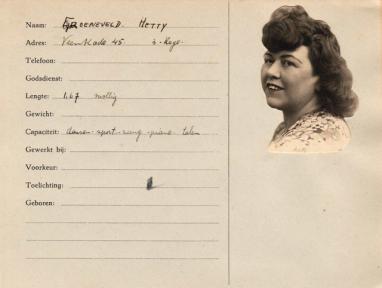 Naam: GROENEVELD. HETTY
Adres: Veenkade 45 s-Hage.
Telefoon:
Godsdienst:
Lengte: 1.67 mollig
Gewicht:
Capaciteit: dansen - sport - zang - piano - talen
Gewerkt bij:
Voorkeur:
Toelichting:
Geboren: